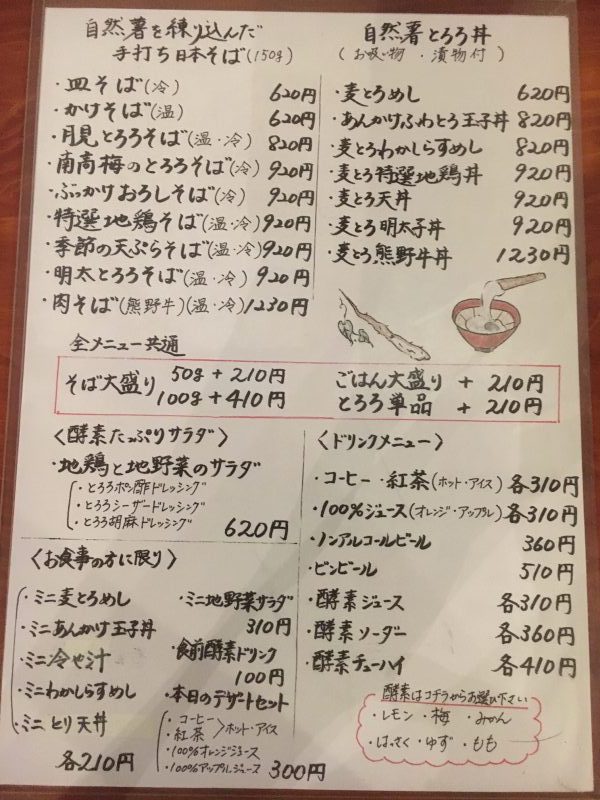 自然薯を練り込んだ
手打ち日本そば(150g)
・皿そば(冷) 620円
・かけそば(温) 620円
・月見とろろそば(温・冷) 820円
・南高梅のとろろそば(温・冷) 920円
・ぶっかけおろしそば(冷) 920円
・特選地鶏そば(温・冷) 920円
・季節の天ぷらそば(温・冷) 920円
・明太とろろそば(温・冷) 920円
・肉そば(熊野牛)(温・冷) 1230円
自然薯とろろ丼
(お吸い物・漬物付)
・麦とろめし 620円
・あんかけふわとろ玉子丼 820円
・麦とろわかしらすめし 820円
・麦とろ特選地鶏丼 920円
・麦とろ天丼 920円
・麦とろ明太子丼 920円
・麦とろ熊野牛丼 1230円
全メニュー共通
そば大盛り 50g+210円
100g+410円
ごはん大盛り + 210円
とろろ単品 + 210円
〈酵素たっぷりサラダ〉
・地鶏と地野菜のサラダ
・とろろポン酢ドレッシング
・とろろシーザードレッシング
・とろろ胡麻ドレッシング
620円
〈お食事の方に限り〉
・ミニ麦とろめし
・ミニあんかけ玉子丼
・ミニ冷や汁
・ミニわかしらすめし
・ミニとり天丼
各210円
・ミニ地野菜サラダ
310円
・食前酵素ドリンク
100円
・本日のデザートセット
・コーヒー
・紅茶 〉ホット・アイス
・100%オレンジジュース
・100%アップルジュース
300円
〈ドリンクメニュー〉
・コーヒー・紅茶(ホット・アイス) 各310円
・100%ジュース(オレンジ・アップル) 各310円
・ノンアルコールビール 360円
・ビンビール 510円
・酵素ジュース 各310円
・酵素ソーダー 各360円
・酵素チューハイ 各410円
酵素はコチラからお選び下さい
・レモン ・梅 ・みかん
・はっさく ・ゆず ・もも